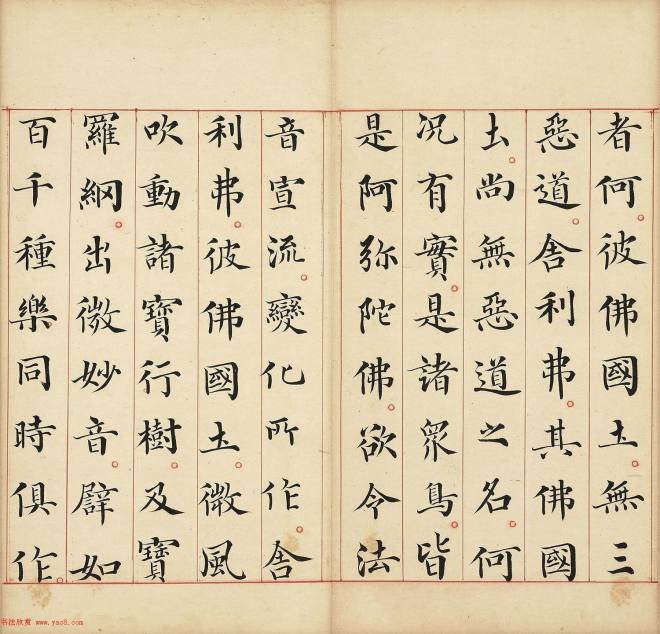 者何彼佛國土無三
惡道舍利弗其佛國
土尚無惡道之名何
况有實是諸衆鳥皆
是阿弥陀佛欲令法
音宣流變化所作舍
利弗彼佛國土微風
吹動諸寶行樹及寶
羅網出微妙音譬如
百千種樂同時俱作
书法欣赏 www.yac8.com